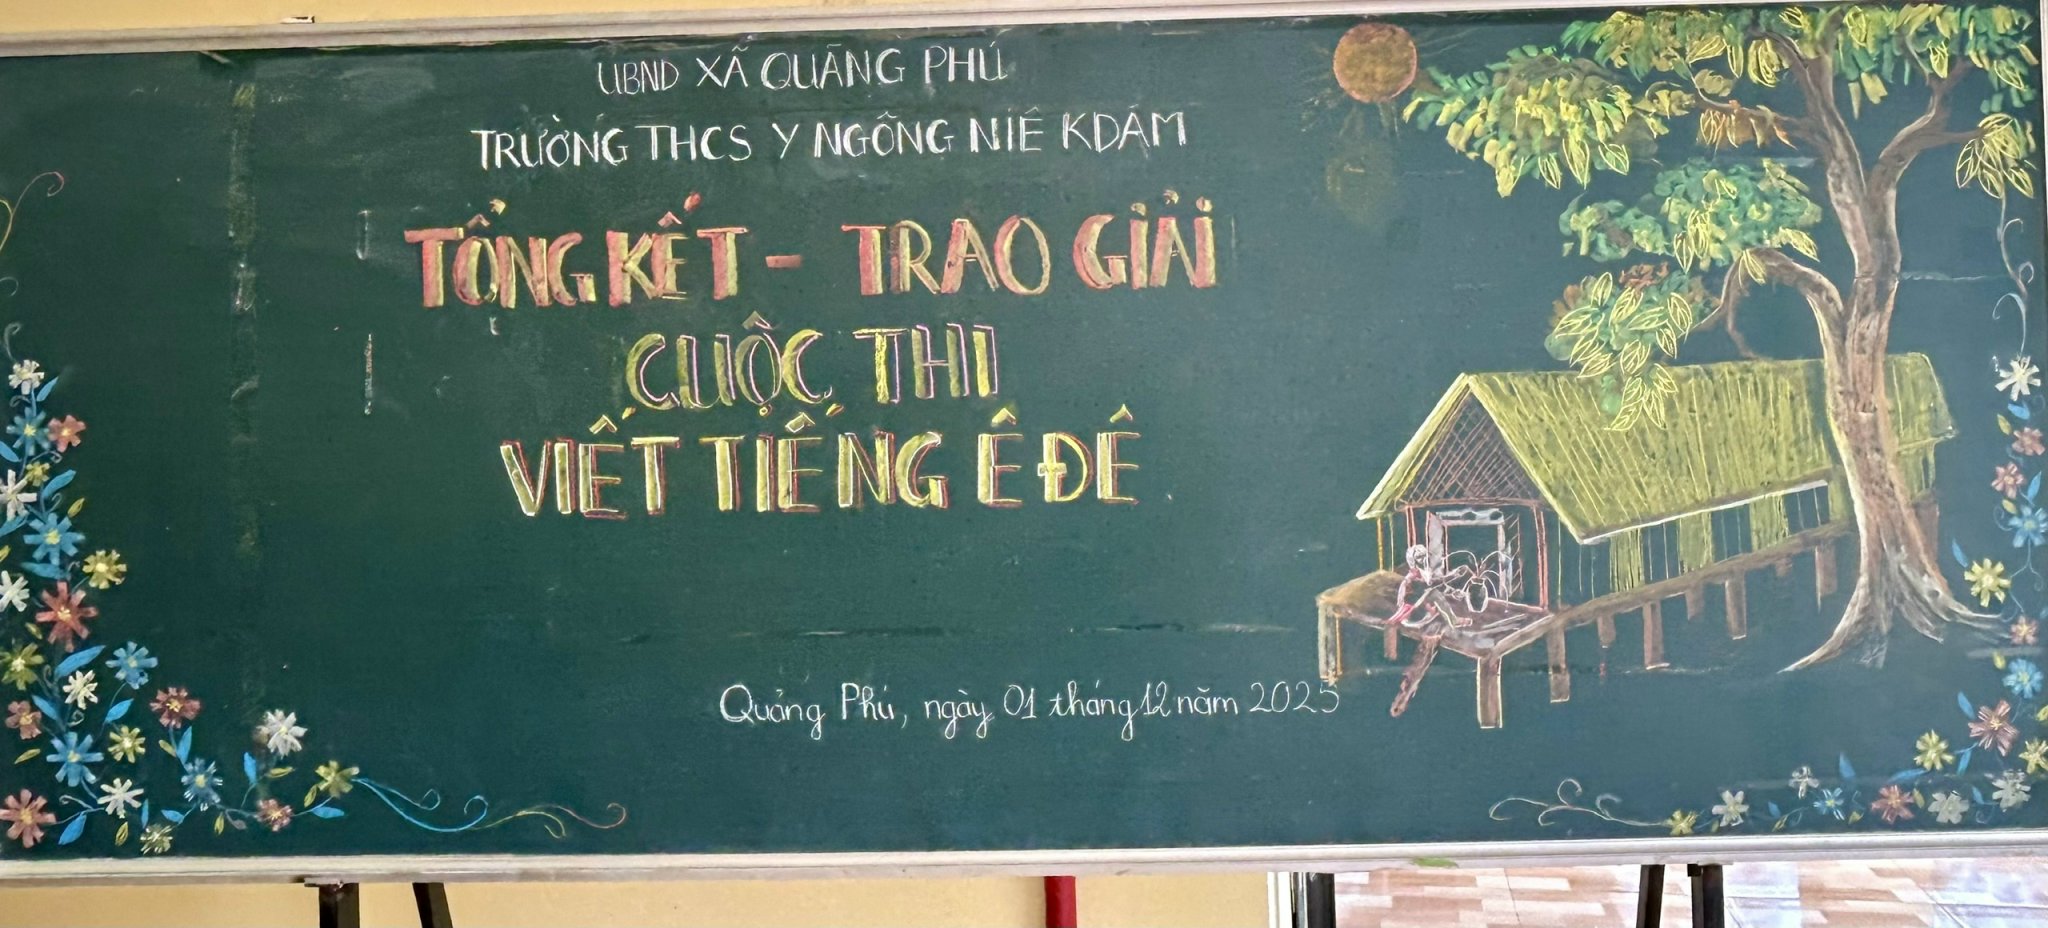 UBND XÃ QUẢNG PHÚ
TRƯỜNG THCS Y NGÔNG NIÊ KDĂM
TỔNG KẾT - TRAO GIẢI
CUỘC THI
VIẾT TIẾNG Ê ĐÊ
Quảng Phú, ngày 01 tháng 12 năm 2025